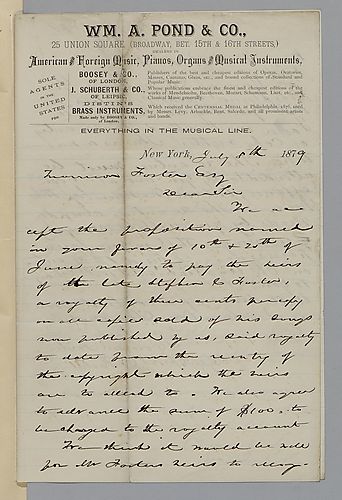 WM. A. POND & CO.,
25 UNION SQUARE (BROADWAY, BET. 15TH & 16TH STREETS,)
DEALERS IN
American and Foreign Music, Pianos, Organs and Musical Instruments,
SOLE AGENTS IN THE UNITED STATES FOR
BOOSEY & CO., OF LONDON,
J. SCHUBERTH & CO., OF LEIPSIC,
DISTIN'S BRASS INSTRUMENTS,
Made only by BOOSEY & CO., of London,
Publishers of the best and cheapest editions of Operas, Oratorios, Masses, Cantatas, Glees, etc., and bound collections of Standard and Popular Music.
Whose publications embrace the finest and cheapest editions of the works of Mendelssohn, Beethoven, Mozart, Schumann, Liszt, etc., and Classical Music generally.
Which received the CENTENNIAL MEDAL at Philadelphia, 1876, used by Messrs. Levy, Arbuckle, Bent, Saberde, and all prominent artists and bands.
EVERYTHING IN THE MUSICAL LINE.
New York, July 8th 1879
Morrison Foster Esq
Dear Sir
We ac
cept the proposition named
in your favors of 10th & 20th of
June, namely to pay the heirs
of the late Stephen C Foster,
a royalty of three cents per copy
on all copies sold of his songs
now published by us, said royalty
to date from the
the copyright which the heirs
are to attend to. We also agree
to advance the sum of $100. to
be charged to the royalty account
We think it would be well
for Mr Fosters heirs to